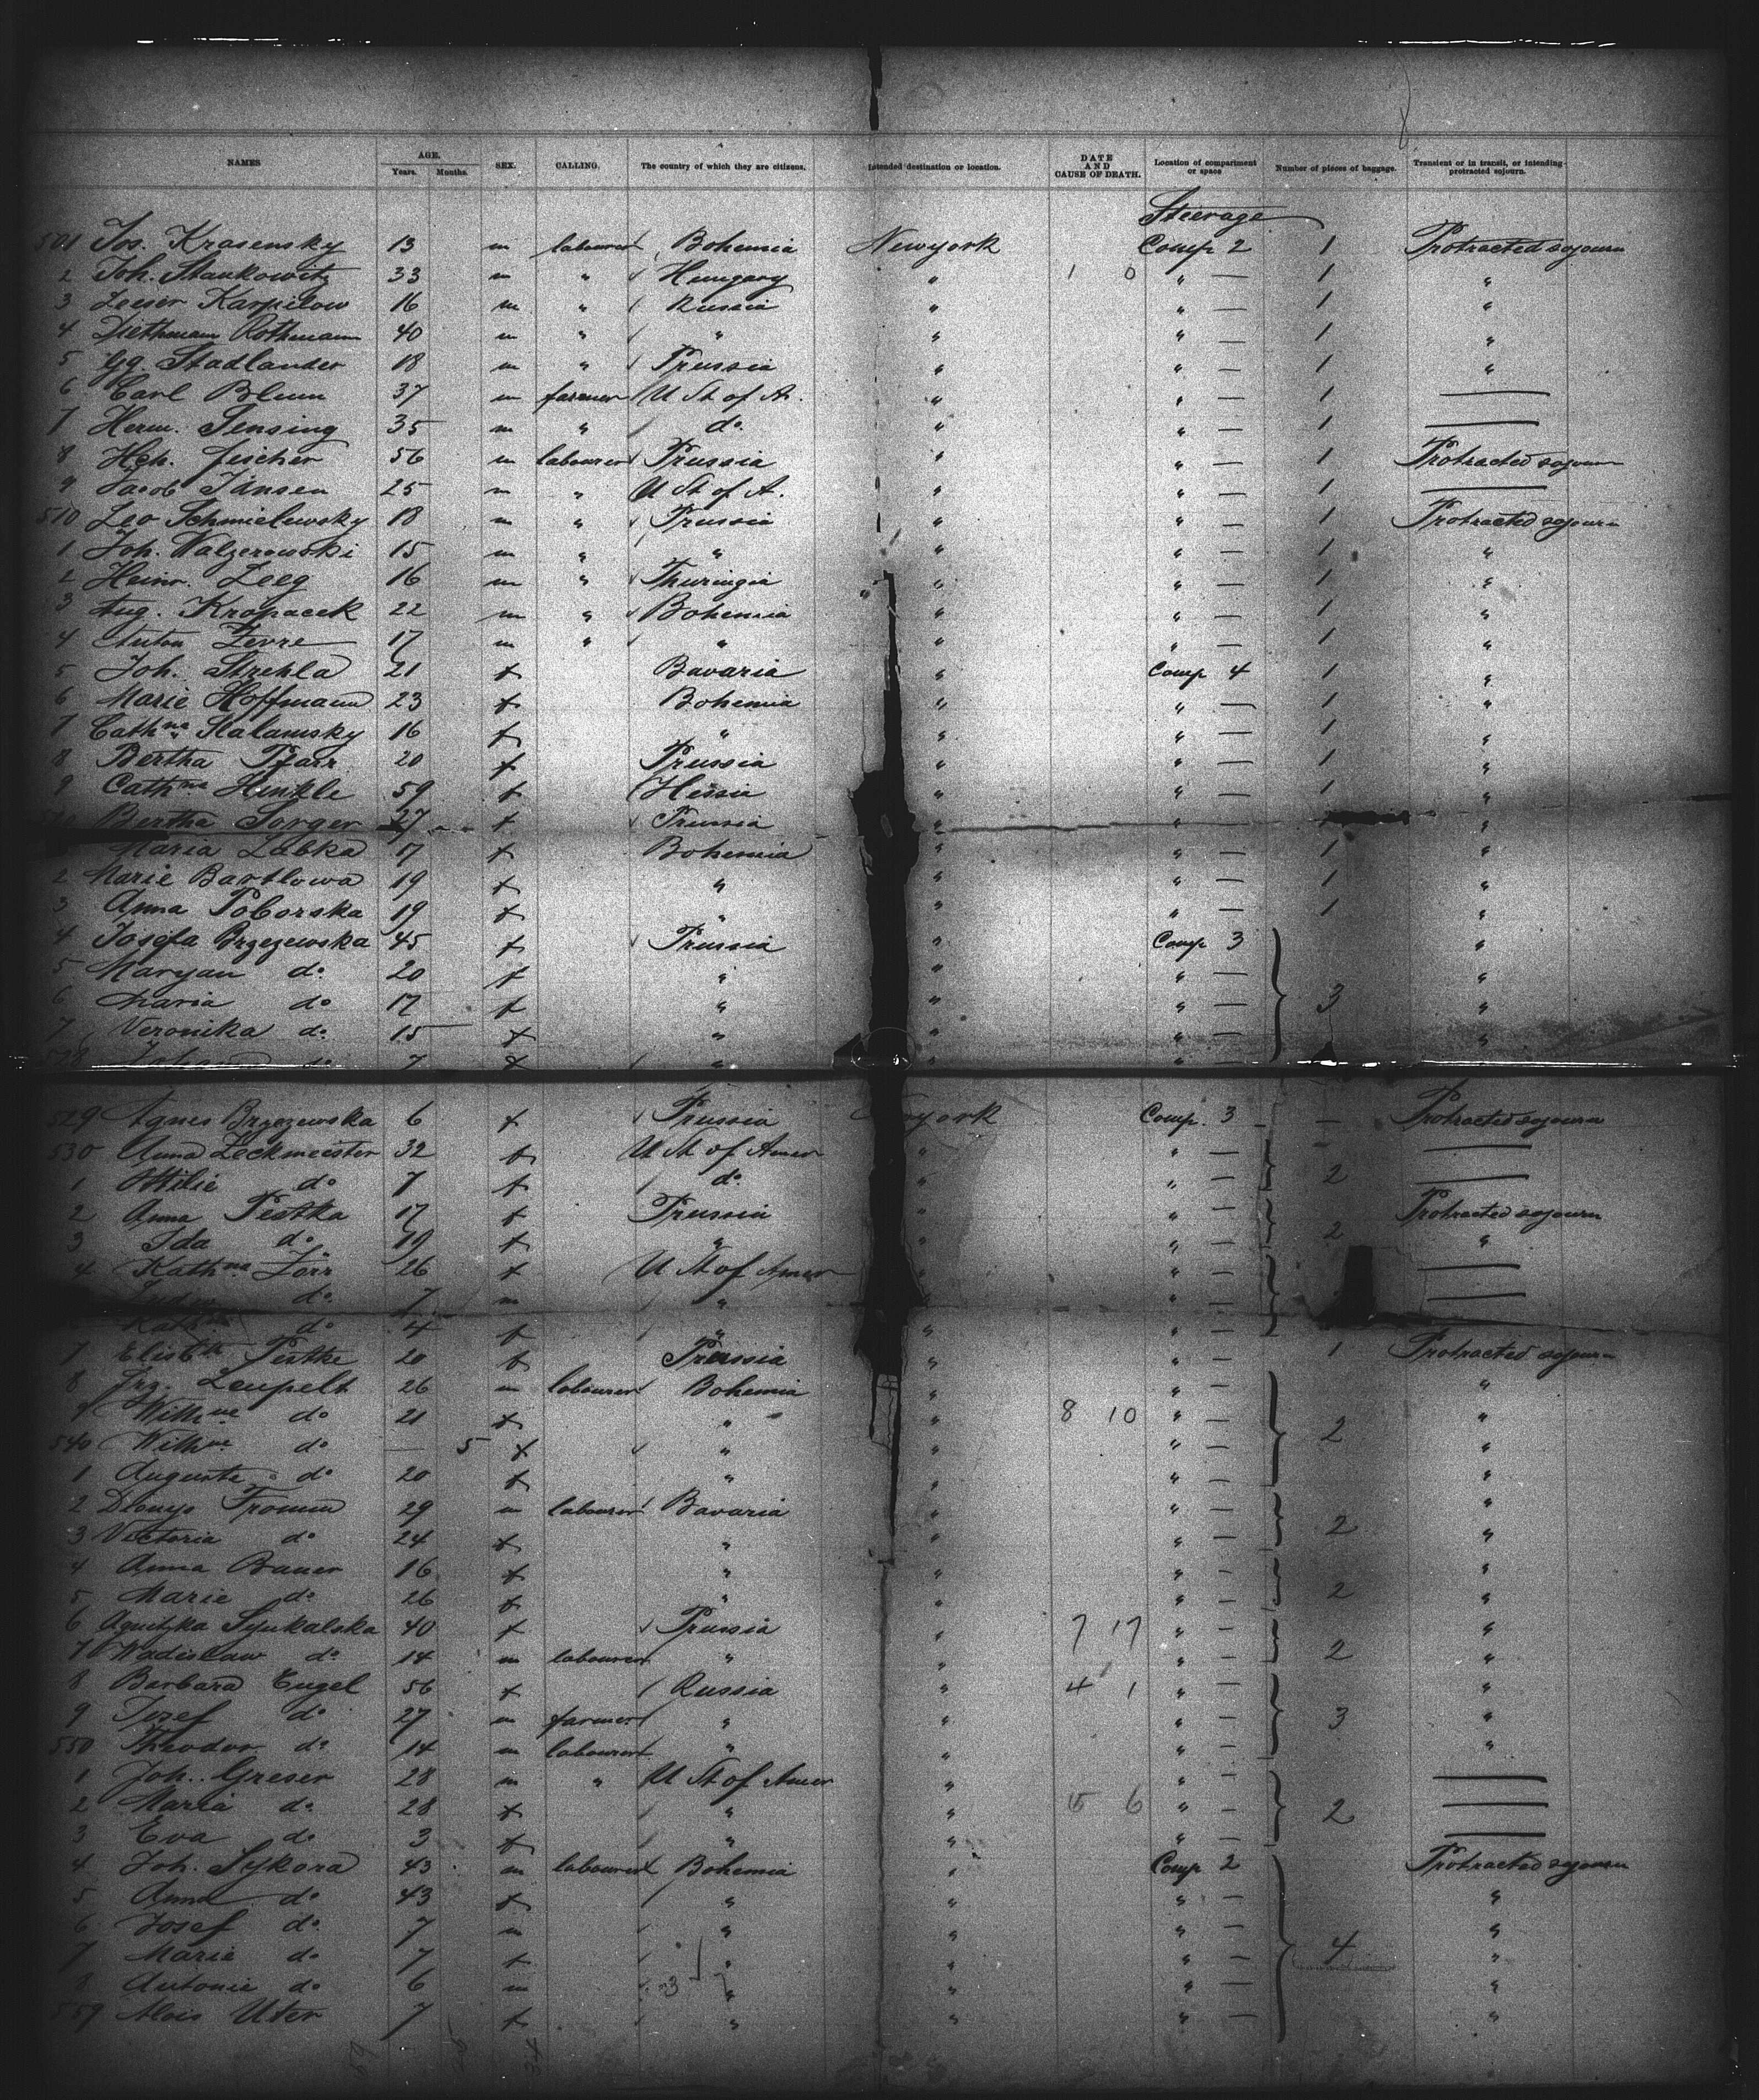 NAMES AGE. Years. Months. SEX. CALLING. The country of which they are citizens. Intended destination or location. DATE AND CAUSE OF DEATH. Location of compartment or space Number of pieces of baggage. Transient or in transit, or intending protracted sojourn.
Steerage
501 Jos. Krasensky 13 m labourer Bohemia Newyork Comp 2 1 Protracted sojourn
2 Joh. Stankowitz 33 m " Hungary " 1 0 " — 1 "
3 Leeser Karpilow 16 m " Russia " " — 1 "
4 Diethmann Rothmann 40 m " " " " — 1 "
5 Gg. Stadlander 18 m " Prussia " " — 1 "
6 Carl Blum 37 m farmer U St of A. " " — 1 —
7 Herm. Sensing 35 m " do. " " — 1 —
8 Hch. Fischer 56 m labourer Prussia " " — 1 Protracted sojourn
9 Jacob Jansen 25 m " U St of A. " " — 1 —
510 Leo Schmielewsky 18 m " Prussia " " — 1 Protracted sojourn
1 Joh. Walzerowski 15 m " " " " — 1 "
2 Heinr. Zeeg 16 m " Thuringia " " — 1 "
3 Aug. Kropacek 22 m " Bohemia " " — 1 "
4 Anton Zevre 17 m " " " " — 1 "
5 Joh. Strehla 21 f Bavaria " Comp 4 1 "
6 Marie Hoffmann 23 f Bohemia " " — 1 "
7 Cathna Slalamsky 16 f " " " — 1 "
8 Bertha Pfarr 20 f Prussia " " — 1 "
9 Cathna Henkle 59 f Hessia " " — 1 "
Bertha Sorger 27 f Prussia " " — 1 "
Maria Zabka 17 f Bohemia " " — 1 "
2 Marie Bartlowa 19 f " " " — 1 "
3 Anna Poborska 19 f " " " — 1 "
4 Josefa Brzezewska 45 f Prussia " Comp 3 "
5 Maryan do 20 f " " " — "
6 Maria do 17 f " " " — 3 "
7 Veronika do 15 f " " " — "
528 do 7 f " " " —
529 Agnes Brzezewska 6 f Prussia Newyork Comp. 3 — Protracted sojourn
530 Anna Zeckmeister 32 f U St of Amer " " — —
1 Ottilie do 7 f do. " " — 2 —
2 Anna Pestka 17 f Prussia " " — Protracted sojourn
3 Ida do 19 f " " " — 2 "
4 Kathna Zörr 26 f U St of Amer " " — —
do 7 m " " " — —
Kathna do 4 f " " " —
7 Elisbth Pestke 20 f Prussia " " — 1 Protracted sojourn
8 Jrg. Leupelt 26 m labourer Bohemia " " — "
9 Wilhne do 21 f " " 8 10 " — 2 "
540 Wilhne do — 5 f " " " — "
1 Auguste do 20 f " " " — "
2 Dionys Fromm 29 m labourer Bavaria " " — "
3 Victoria do 24 f " " " — 2 "
4 Anna Bauer 16 f " " " — "
5 Marie do 26 f " " " — 2 "
6 Agnitzka Syukalska 40 f Prussia " 7 17 " — "
7 Wadislaw do 14 m labourer " " " — 2 "
8 Barbara Engel 56 f Russia " 4 1 " — "
9 Josef do 27 m farmer " " " — 3 "
550 Theodor do 14 m labourer " " " — "
1 Joh. Greser 28 m " U St of Amer " " — —
2 Maria do 28 f " " 15 6 " — 2 —
3 Eva do 3 f " " " — —
4 Joh. Sykora 43 m labourer Bohemia " Comp 2 Protracted sojourn
5 Anna do 43 f " " " — "
6 Josef do 7 m " " " — "
7 Marie do 7 f " " " — 4 "
8 Antonie do 6 m " " " — "
559 Alois Uter 7 f " " " — "